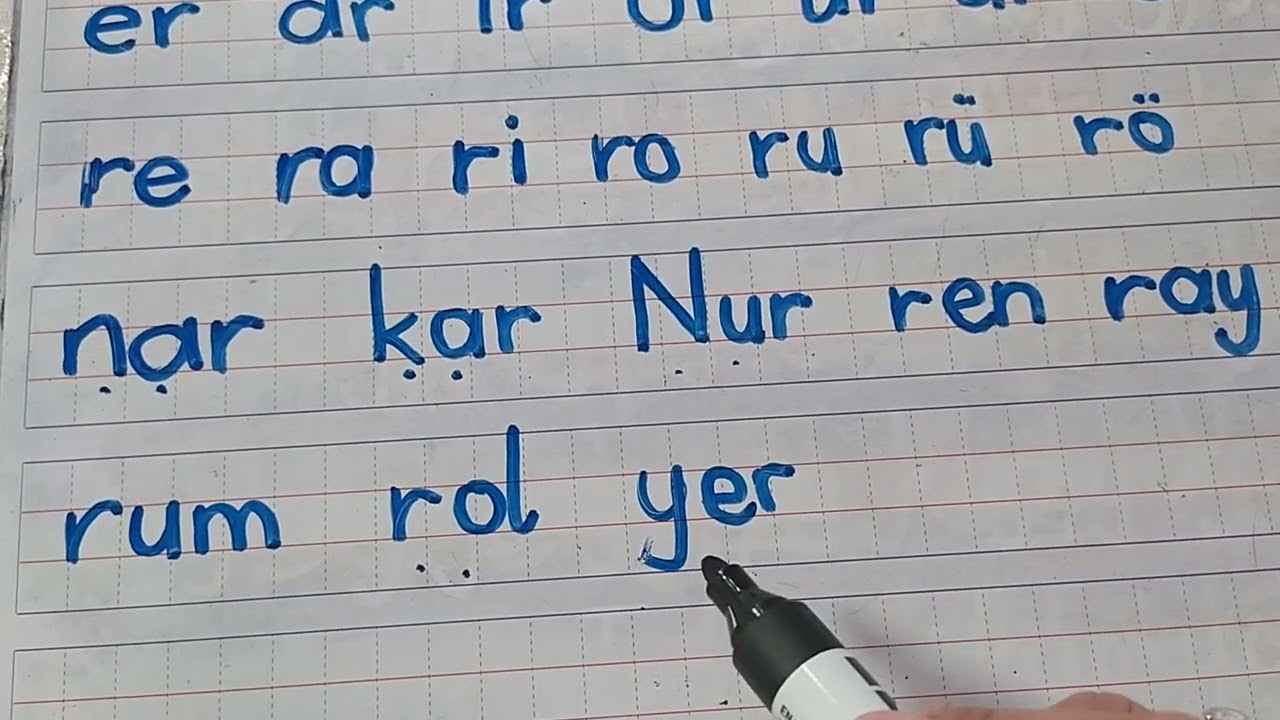 er ar ir or ur
re ra ri ro ru rü rö
nar kar Nur ren ray
rum rol yer